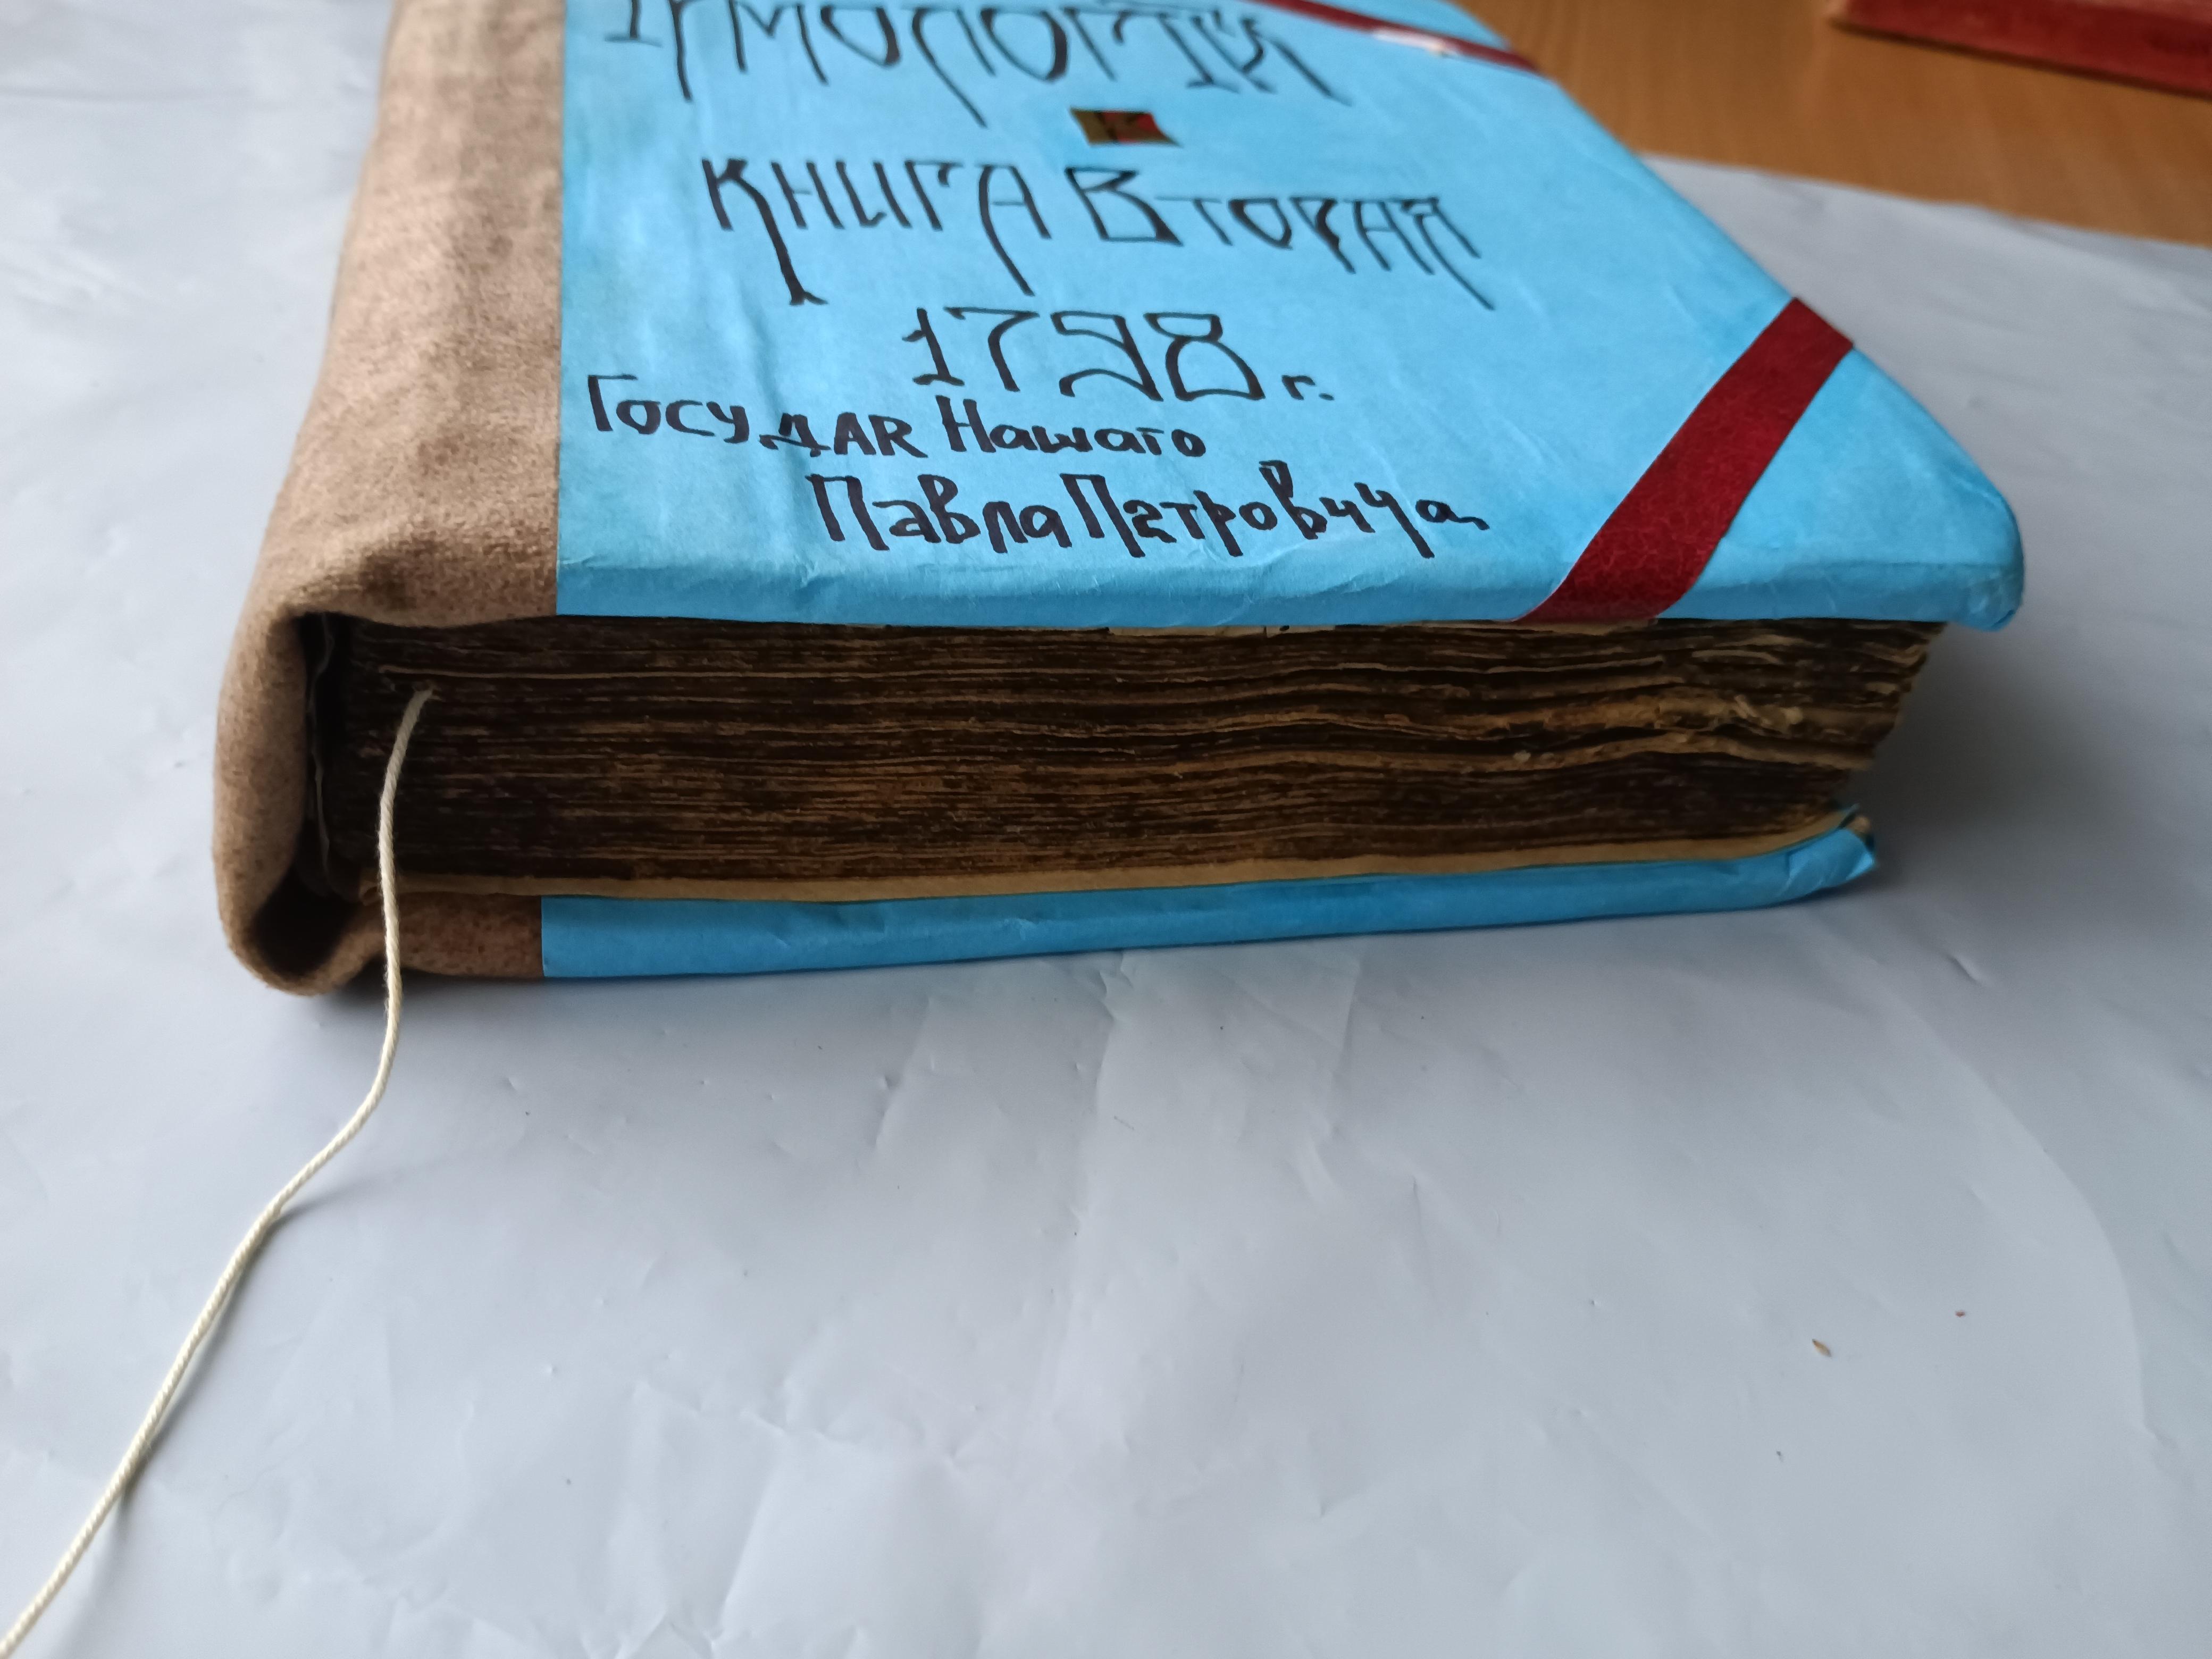 Ірмологїй
Книга Вторая
1798 г.
Государ Нашаго
Павла Петровича